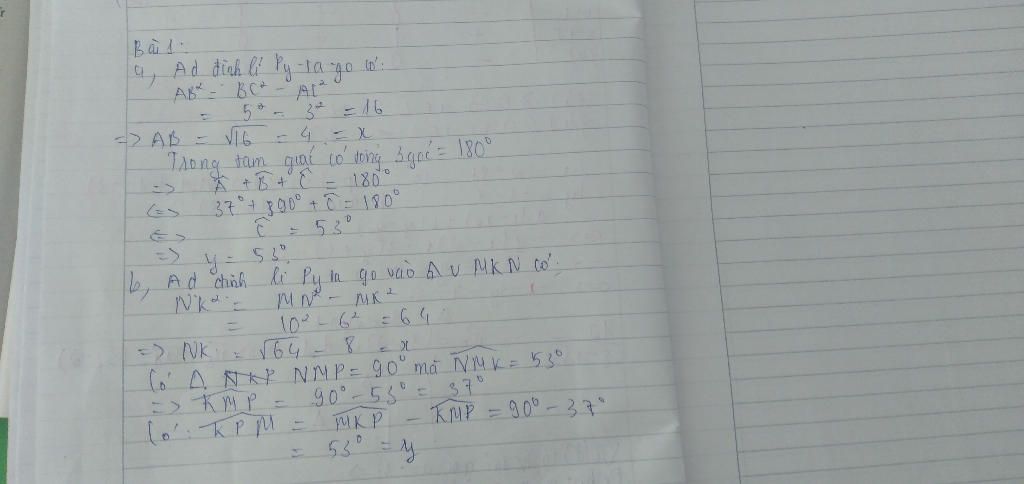 Bài 1:
a, Ad định lí Py-ta-go có:
AB² = BC² - AC²
= 5² - 3² = 16
=> AB = √16 = 4 = x
Trong tam giác có tổng 3 góc = 180°
=> Â + B̂ + Ĉ = 180°
<=> 37° + 90° + Ĉ = 180°
<=> Ĉ = 53°
=> y = 53°
b, Ad định lí Py ta go vào Δ v MKN có:
NK² = MN² - MK²
= 10² - 6² = 64
=> NK = √64 = 8 = x
Có Δ NMP = 90° mà NMK = 53°
=> KMP = 90° - 53° = 37°
Có: KPM = MKP - KMP = 90° - 37°
= 53° = y